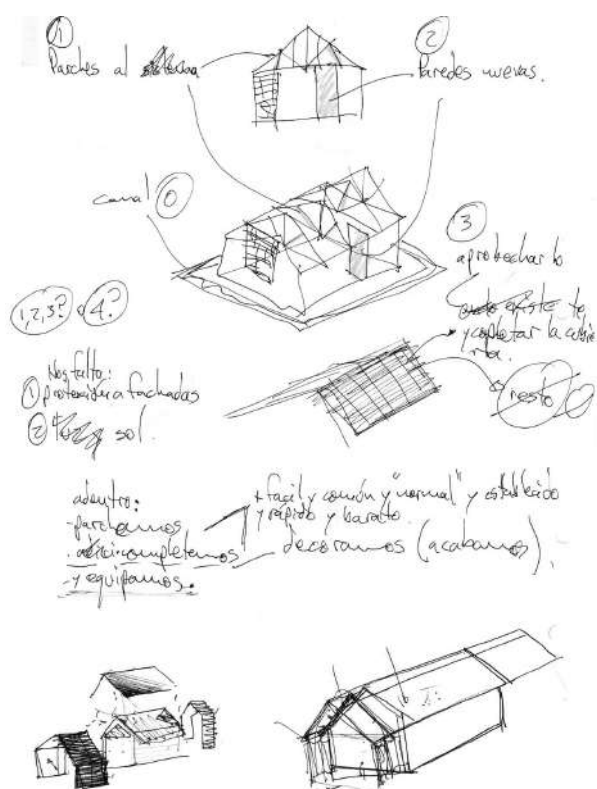 ①
Parches al sistema
②
Paredes nuevas.
canal ⓪
③
aprobechar lo
existente
y copletar la cubie
rta.
1,2,3? o 4?
Nos falto:
① proteccion a fachadas
② sol.
resto
adentro:
- parchamos
- completamos
- y equipamos.
+ facil y común y "normal" y establecido
y rápido y barato.
decoramos (acabamos).